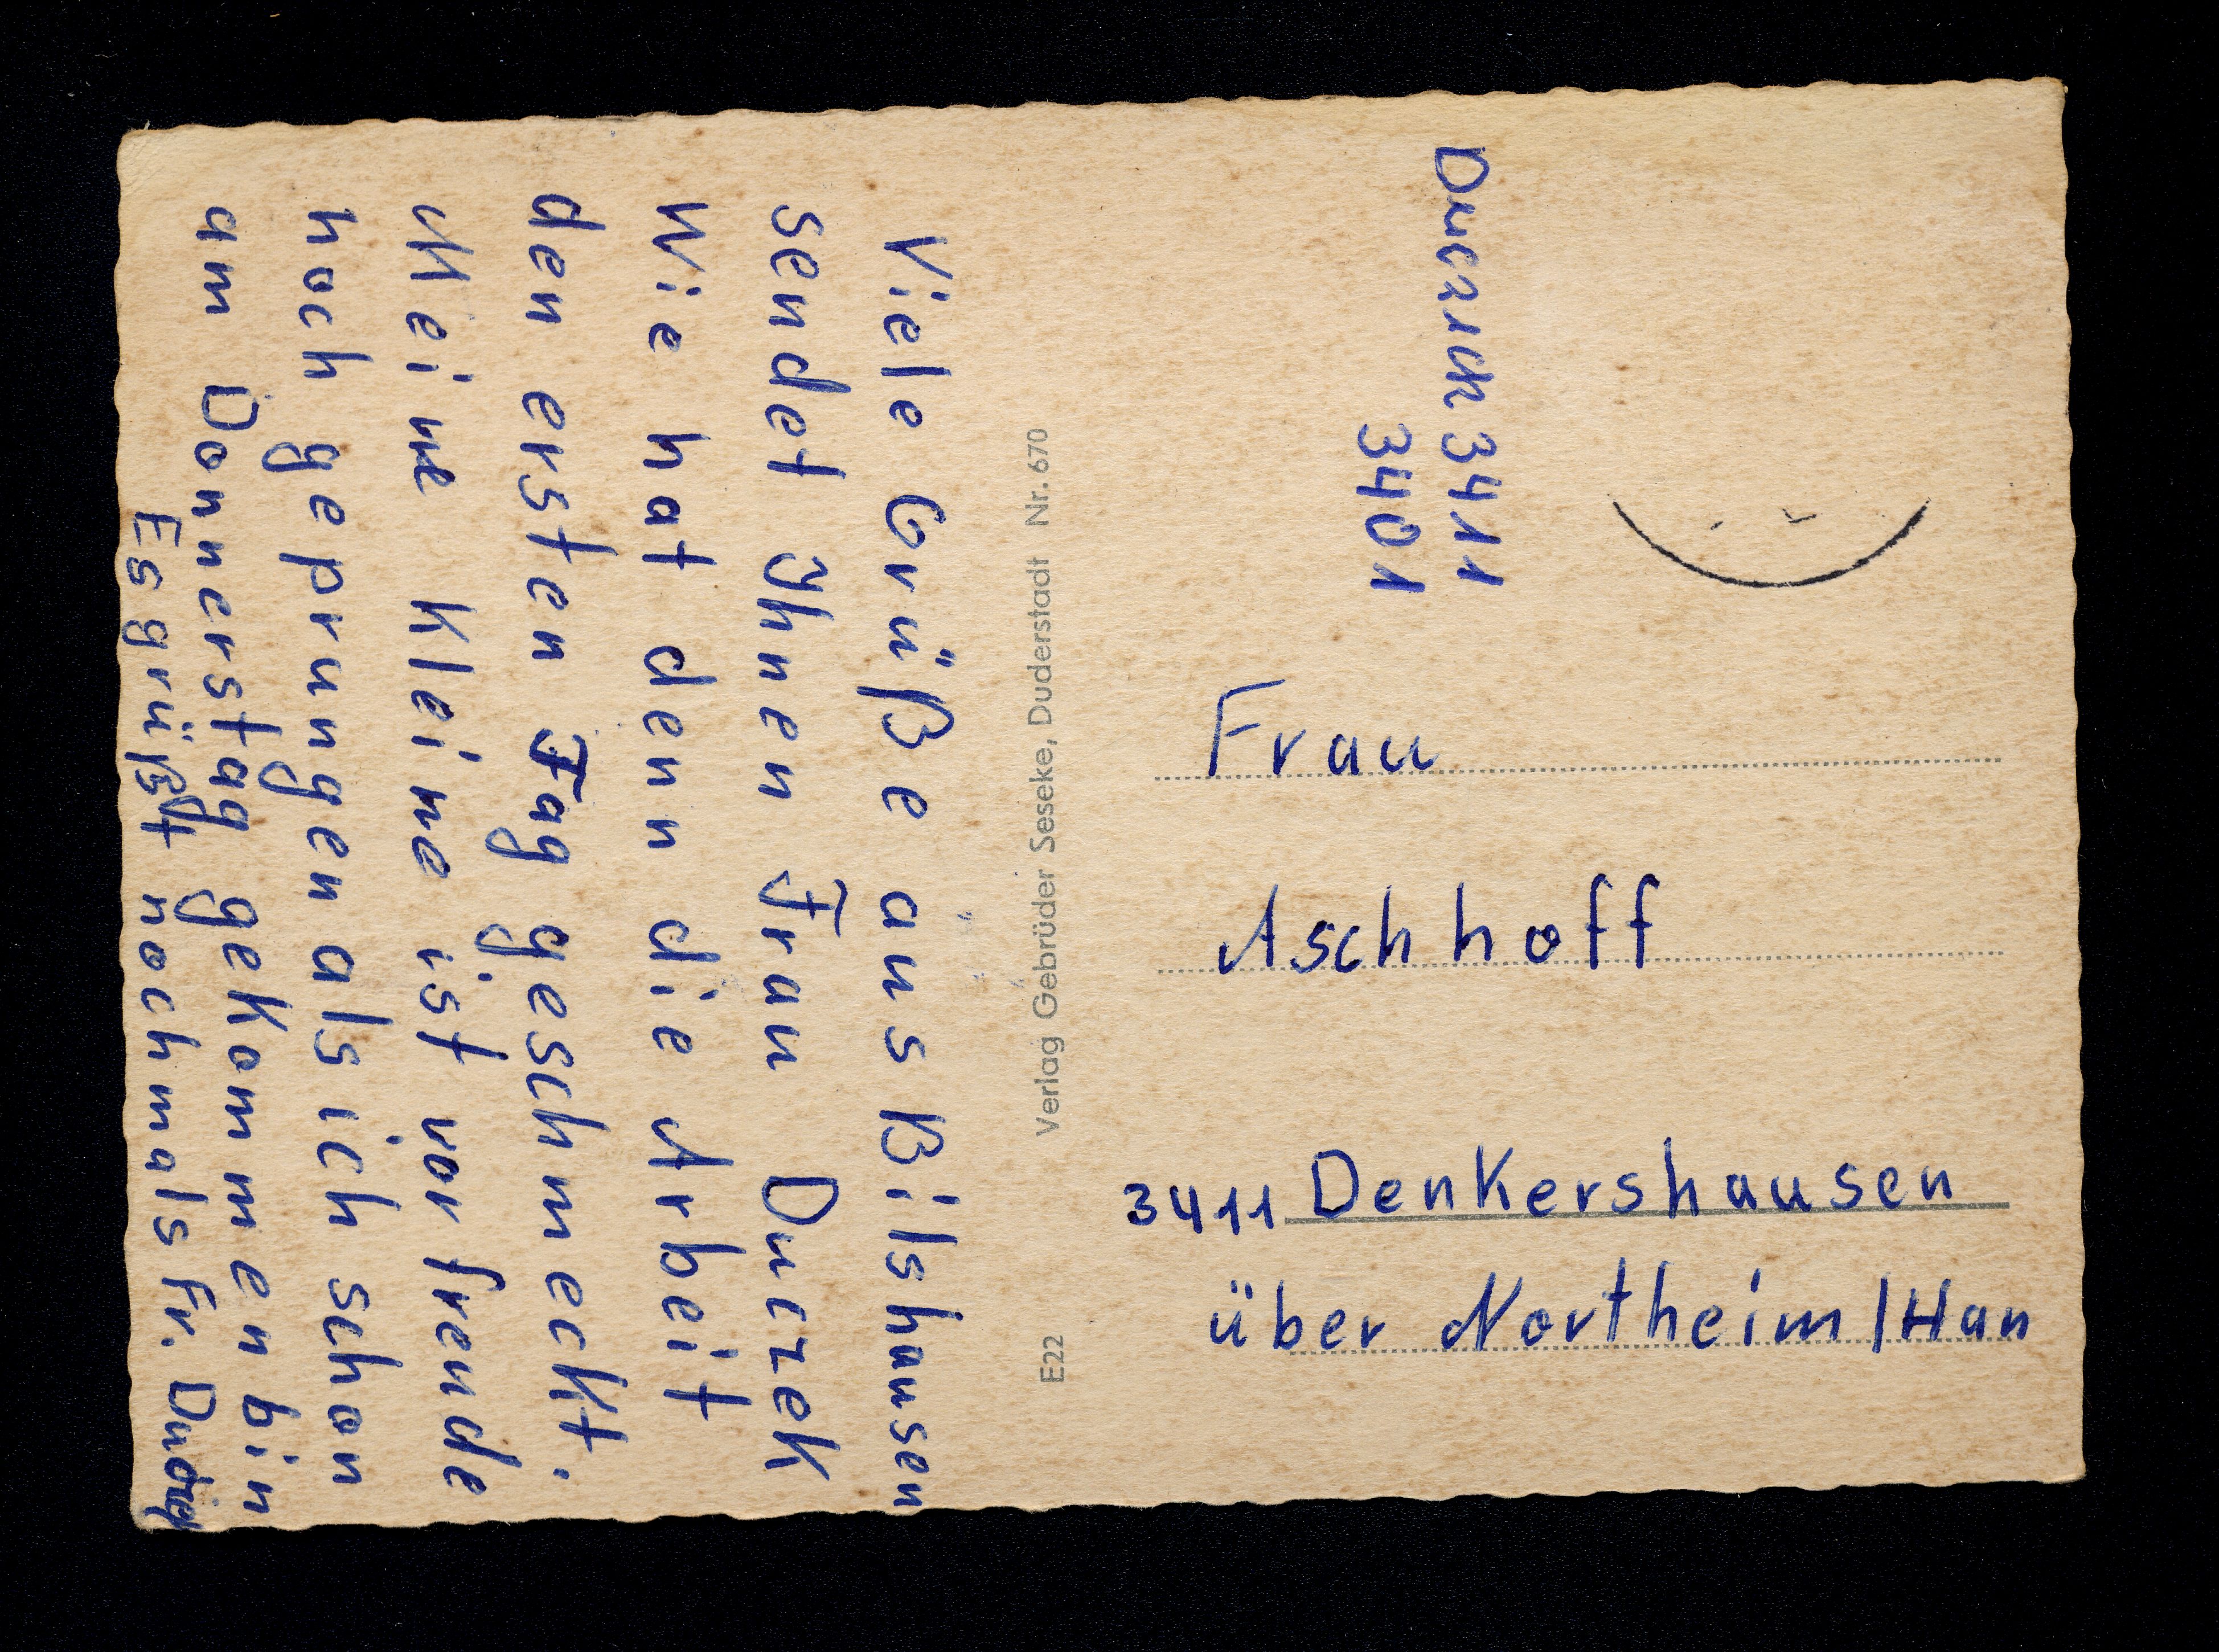 Viele Grüße aus Bilshausen
sendet Ihnen Frau Duczek
Wie hat denn die Arbeit
den ersten Tag geschmeckt.
Meine Kleine ist vor freude
hoch geprungen als ich schon
am Donnerstag gekommen bin
Es grüßt nochmals Fr. Duczek
Verlag Gebrüder Seseke, Duderstadt Nr. 670
E22
Drucksch 3411
3401
Frau
Aschhoff
3411 Denkershausen
über Northeim/Han